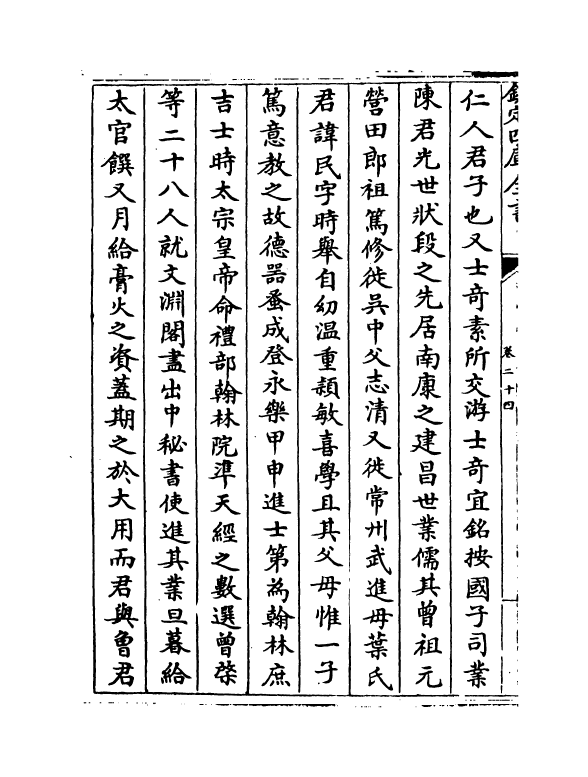 欽定四庫全書
卷二十四
仁人君子也又士奇素所交游士奇宜銘按國子司業
陳君光世狀段之先居南康之建昌世業儒其曾祖元
營田郎祖篤修徙吳中父志清又徙常州武進母葉氏
君諱民字時舉自幼温重頴敏喜學且其父母惟一子
篤意教之故德器蚤成登永樂甲申進士第為翰林庶
吉士時太宗皇帝命禮部翰林院準天經之數選曾棨
等二十八人就文淵閣盡出中秘書使進其業旦暮給
太官饌又月給膏火之資蓋期之於大用而君與魯君